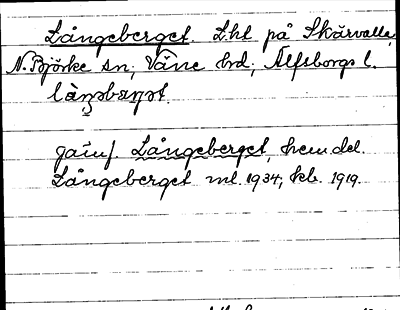 Långeberget. Lht på Skärvalla,
N. Björke sn; Väne hd; Älfsborgs l.
Jämf. Långeberget, hemdel.
Långeberget ml. 1934; kb. 1919.